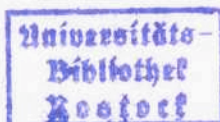 Universitäts-
Bibliothek
Rostock